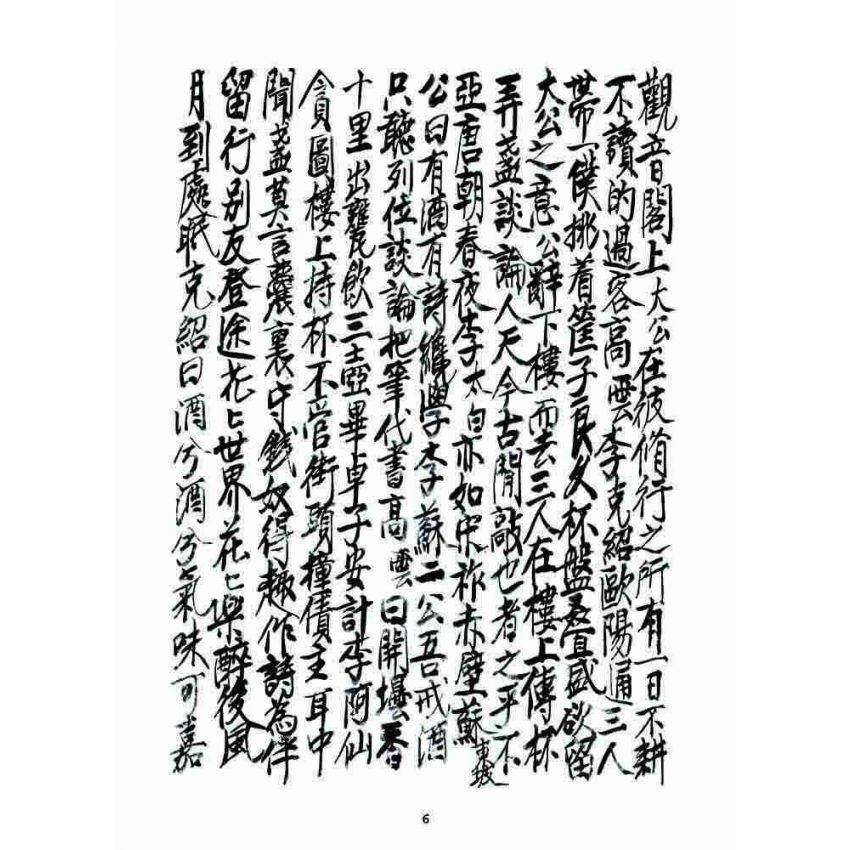 觀音閣上大公在彼脩行之所有一日不耕
不讀的過客高雲李克紹歐陽通三人
帶一僕挑着筐子良久杯盤羞宜盛欲留
大公之意公辭下樓而去三人在樓上傳杯
弄盞談論人天今古閒敲也者之乎不
亞唐朝春夜李太白亦如宋祚赤壁蘇東坡
公曰有酒有詩纔學李蘇二公吾戒酒
只聽列位談論把筆代書高雲曰開壜香
十里出甕飲三士亞畢卓子安計李阿仙
貪圖樓上持杯不管街頭撞債主耳中
聞盞莫言囊裏守錢奴得趣作詩為伴
留行別友登途花七世界花七樂醉後風
月到處眠克紹曰酒兮酒兮氣味可嘉
6